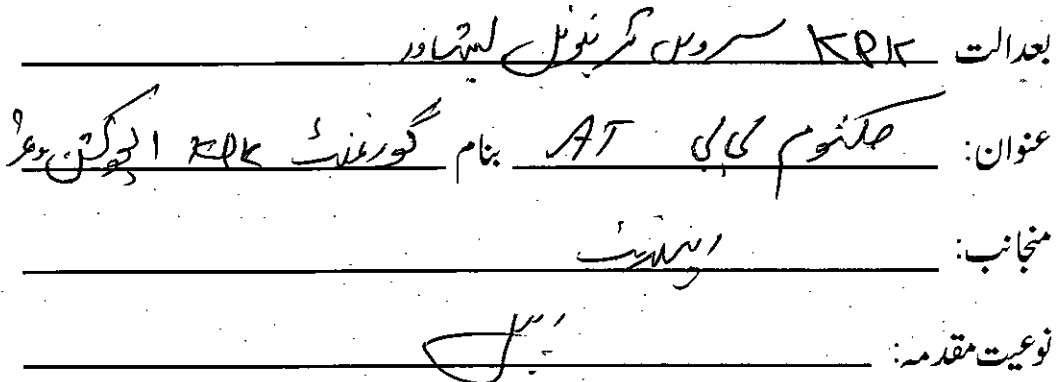 بعدالت KPK سروس ٹریبونل پشاور
عنوان: کلثوم بی بی AT بنام گورنمنٹ KPK ایجوکیشن وغیرہ
منجانب: اپیلانٹ
نوعیت مقدمہ: اپیل